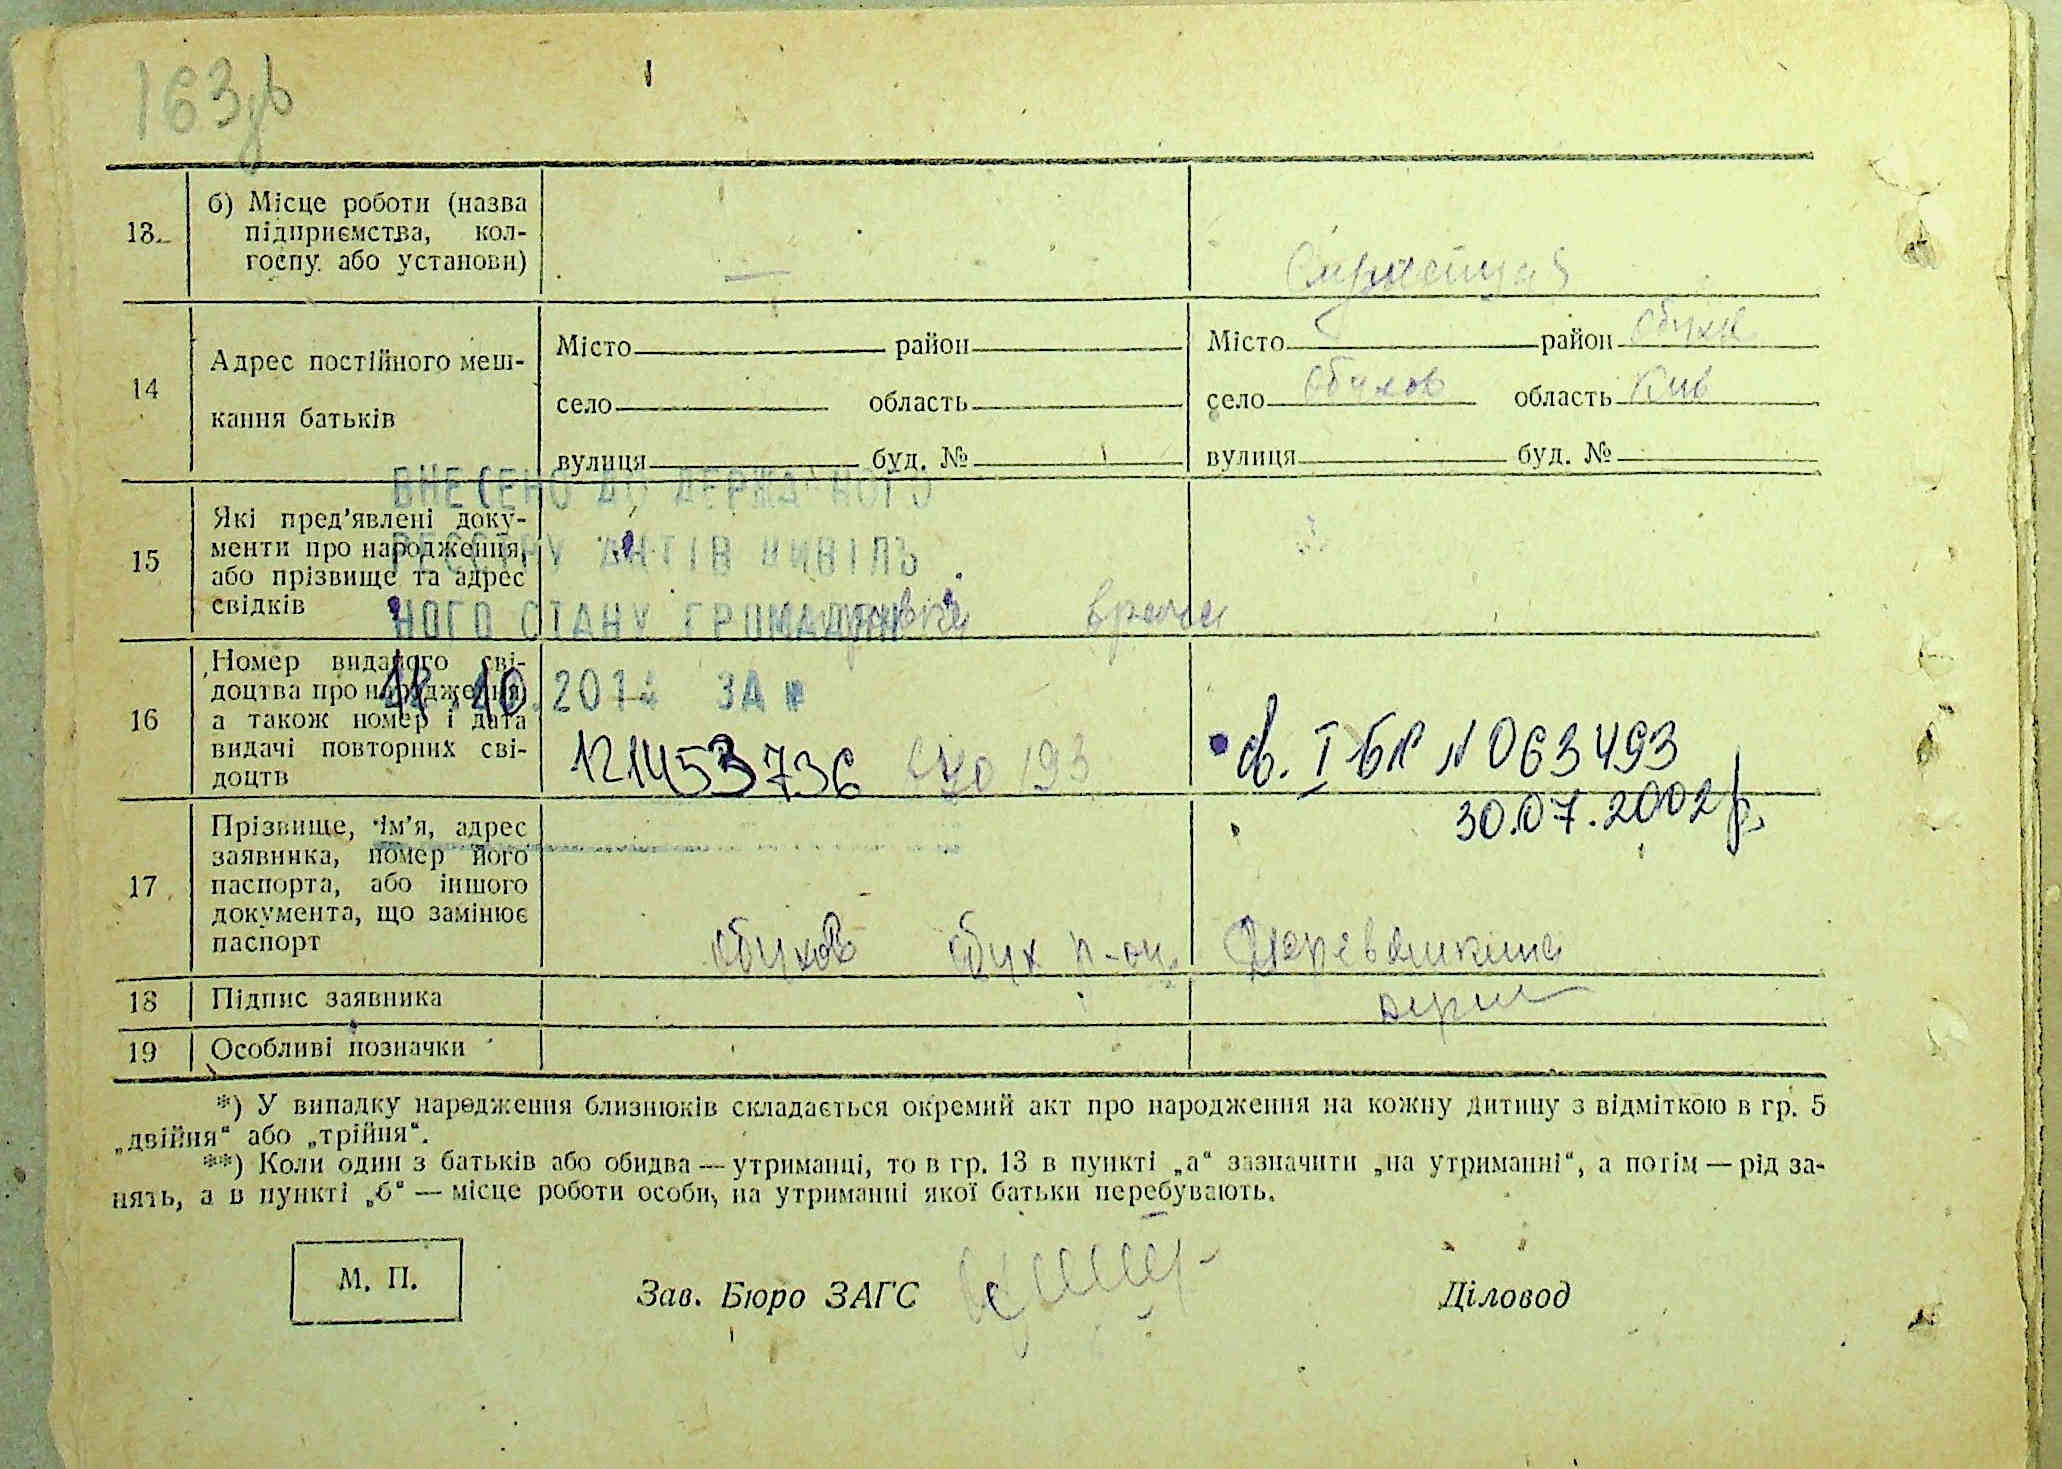 163
13
б) Місце роботи (назва
підприємства, кол-
госпу або установи)
—
14
Адрес постійного меш-
кання батьків
Місто район
село область
вулиця буд. №
Місто район Обухів
село Обухов область Київ
вулиця буд. №
15
Які пред'явлені доку-
менти про народження,
або прізвище та адрес
свідків
врача
ВНЕСЕНО ДО ДЕРЖАВНОГО
РЕЄСТРУ АКТІВ ЦИВІЛЬ
НОГО СТАНУ ГРОМАДЯН
.10.2014 ЗА №
16
Номер виданого сві-
доцтва про народження,
а також номер і дата
видачі повторних сві-
доцтв
121453736 193
св. I БК N 063493
30.07.2002 р.
17
Прізвище, ім'я, адрес
заявника, номер його
паспорта, або іншого
документа, що замінює
паспорт
Обухов Обух р-он.
18
Підпис заявника
19
Особливі позначки
*) У випадку народження близнюків складається окремий акт про народження на кожну дитину з відміткою в гр. 5
„двійня“ або „трійня“.
**) Коли один з батьків або обидва — утриманці, то в гр. 13 в пункті „а“ зазначити „на утриманні“, а потім — рід за-
нять, а в пункті „б“ — місце роботи особи, на утриманні якої батьки перебувають.
М. П.
Зав. Бюро ЗАГС
Діловод